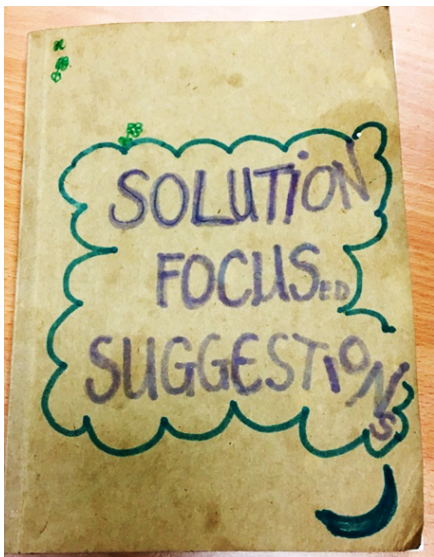 SOLUTION
FOCUSED
SUGGESTIONS